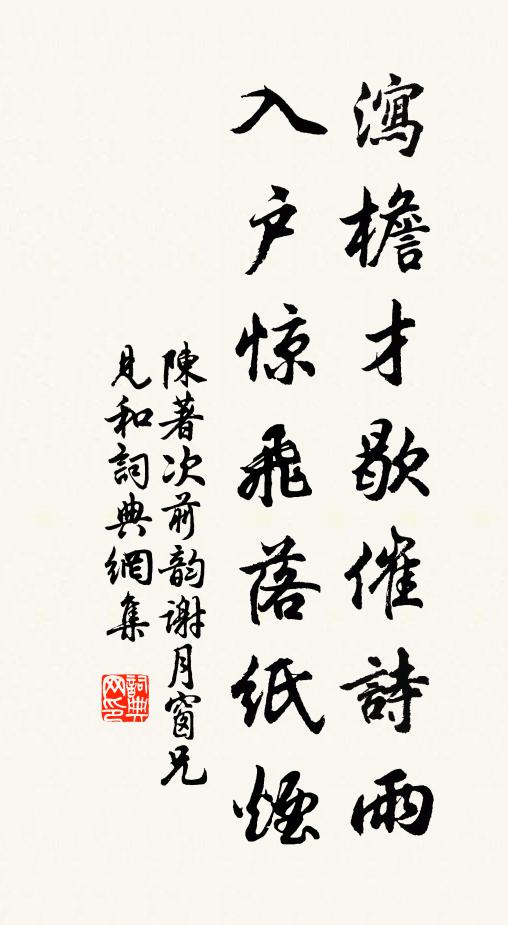 瀉檐才歇催詩雨
入户惊飛落紙煙
陳著次前韵謝月窗兄
見和詞典網集
詞典网印